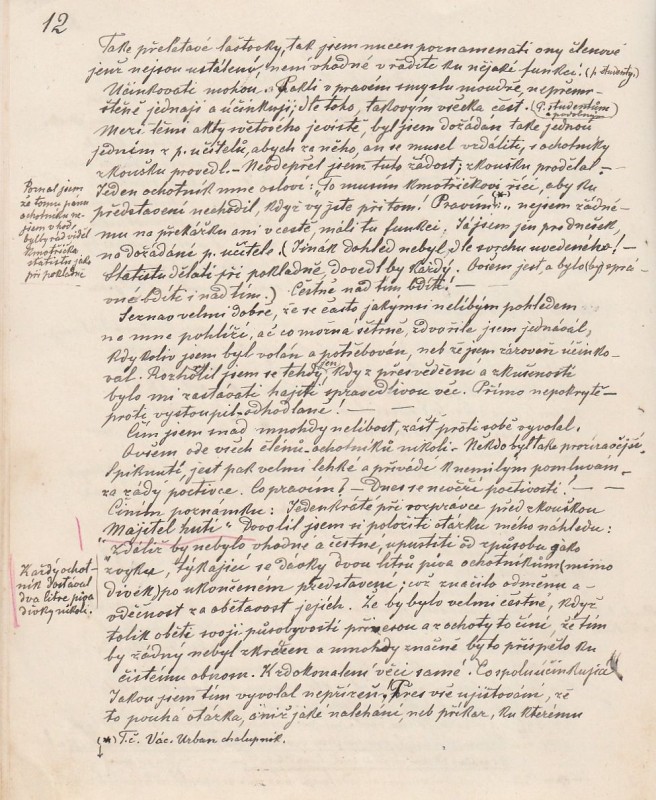 12
Také přeletavé lastovky, tak jsem nucen poznamenati ony členové
jenž nejsou ustáleni, není vhodné vřadite ku nějaké funkcí. (p. studenty.)
Učinkovati mohou. Pakli v pravém smyslu moudře, nepřemr-
štěně jednají a účinkují; dle toho, takovým všecka čest. (P. studentům
podobným)
Mezi těmi akty světového jeviště, byl jsem dožádán také jednou
jedním z p. učitelů, abych za něho, an se musel vzdáliti, s ochotníky
zkoušku provedl. – Neodepřel jsem tuto žádost; zkoušku prodělal –
Jeden ochotník mne osloví: „To musím kmotříčkovi říci, aby ku
představení nechodil, když vy jste při tomˮ! Pravím: – nejsem žádné-
(*)
mu na překážku ani v cestě, máli tu funkci. Já jsem jen pro dnešek,
na dožádání p. učitele. (Jinak dohled nebyl, dle svrchu uvedeného! –
Statistu dělati při pokladně, dovedl by každý. Ovšem jest, a bylo (by) sprá-
vné bdíti i nad tím.) Čestně nad tím bdíti! –
Poznal jsem
za tomu panu
ochotníku ne-
jsem vhod,
byl by rád viděl
kmotříčka
statistu jako
při pokladně
Seznav velmi dobře, že se často jakýmsi nelibým pohledem
na mne pohlíží, ač co možna šetrně, zdvořile jsem jednával,
kdykoliv jsem byl volán a potřebován, neb že jsem zároveň účinko-
val. Rozhořlil jsem se tehdy jen, když z přesvědčení a zkušenosti
bylo mi zastávati hájiti spravedlivou věc. Přímo nepokrytě –
proti vystoupil – odhodlaně! – — —
Čím jsem snad mnohdy nelibost, zášť proti sobě vyvolal.
Ovšem ode všech členů-ochotníků nikoli – Někdo byl také prozíravější.
Spiknutí jest pak velmi lehké a přivádí k nemilým pomluvám –
za zády poctivce. Co pravím? – Dnes se nevěří poctivosti! –
Činím poznámku: Jedenkráte při rozprávce před zkouškou
„Majitel hutíˮ Dovolil jsem si položiti otázku mého náhledu:
„Zdaliž by nebylo vhodné a čestné, upustiti od způsobu jako
zvyku, týkající se dávky dvou litrů piva ochotníkům (mimo
dívek) po ukončeném představení; což značilo odměnu a –
vděčnost za obětavost jejich. Že by bylo velmi čestné, když
tolik oběti svojí působyvostí přinesou a z ochoty to činí, že tím
by žádný nebyl zkrácen a mnohdy značně by to přispělo ku
čistému obnosu. K zdokonalení věci samé. Co spoluúčinkující
Každý ochot-
ník dostával
dva litre piva
dívky nikoli.
Jakou jsem tím vyvolal nepřízeň. Přes vše ujišťování, že
to pouhá otázka, aniž jaké naléhání, neb příkaz, ku kterému
(*) T.č. Vác. Urban chalupník.